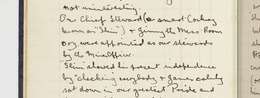 not uninteresting.
Our Chief Steward (a smart Cockney
known as "Slim") & Ginny the Mess Room
Boy were appointed as our stewards
by the Mess Officer.
Slim showed his great independence
by "checking everybody & James calmly
sat down in our greatest Pride and